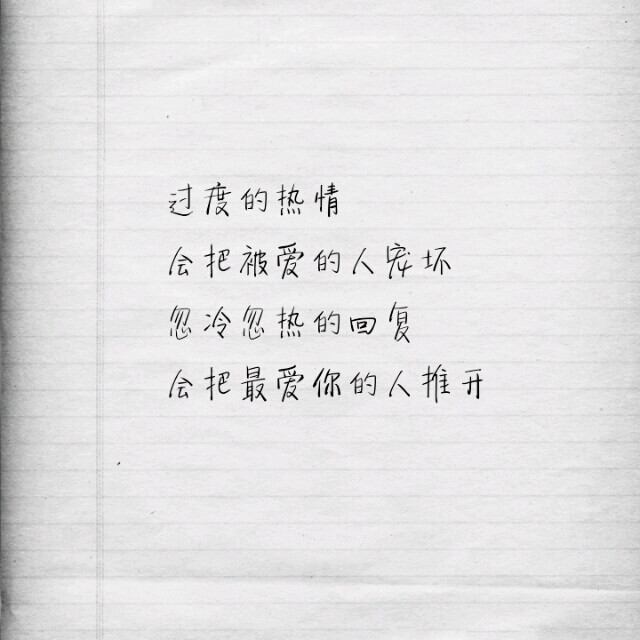 过度的热情
会把被爱的人宠坏
忽冷忽热的回复
会把最爱你的人推开